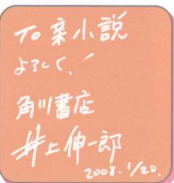 To 亲小説
よろしく!
角川書店
井上伸一郎
2008.1/20.